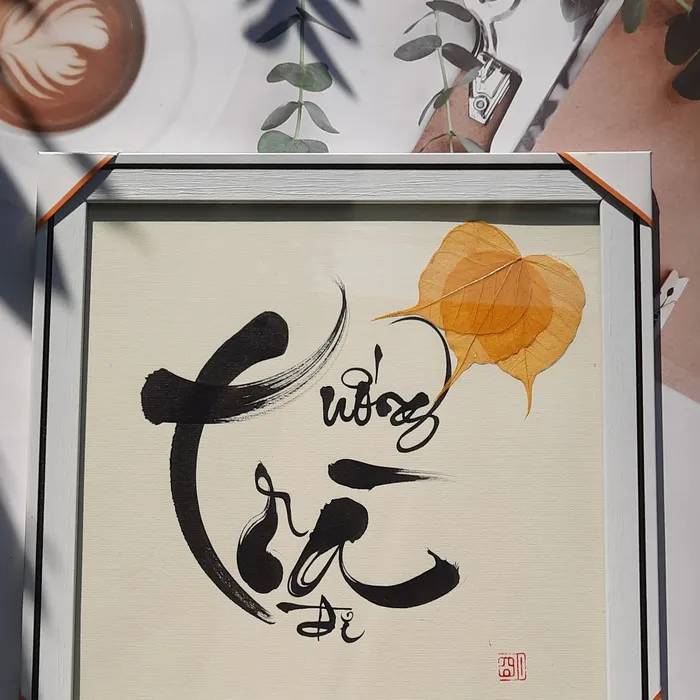 uống
Trà
đi